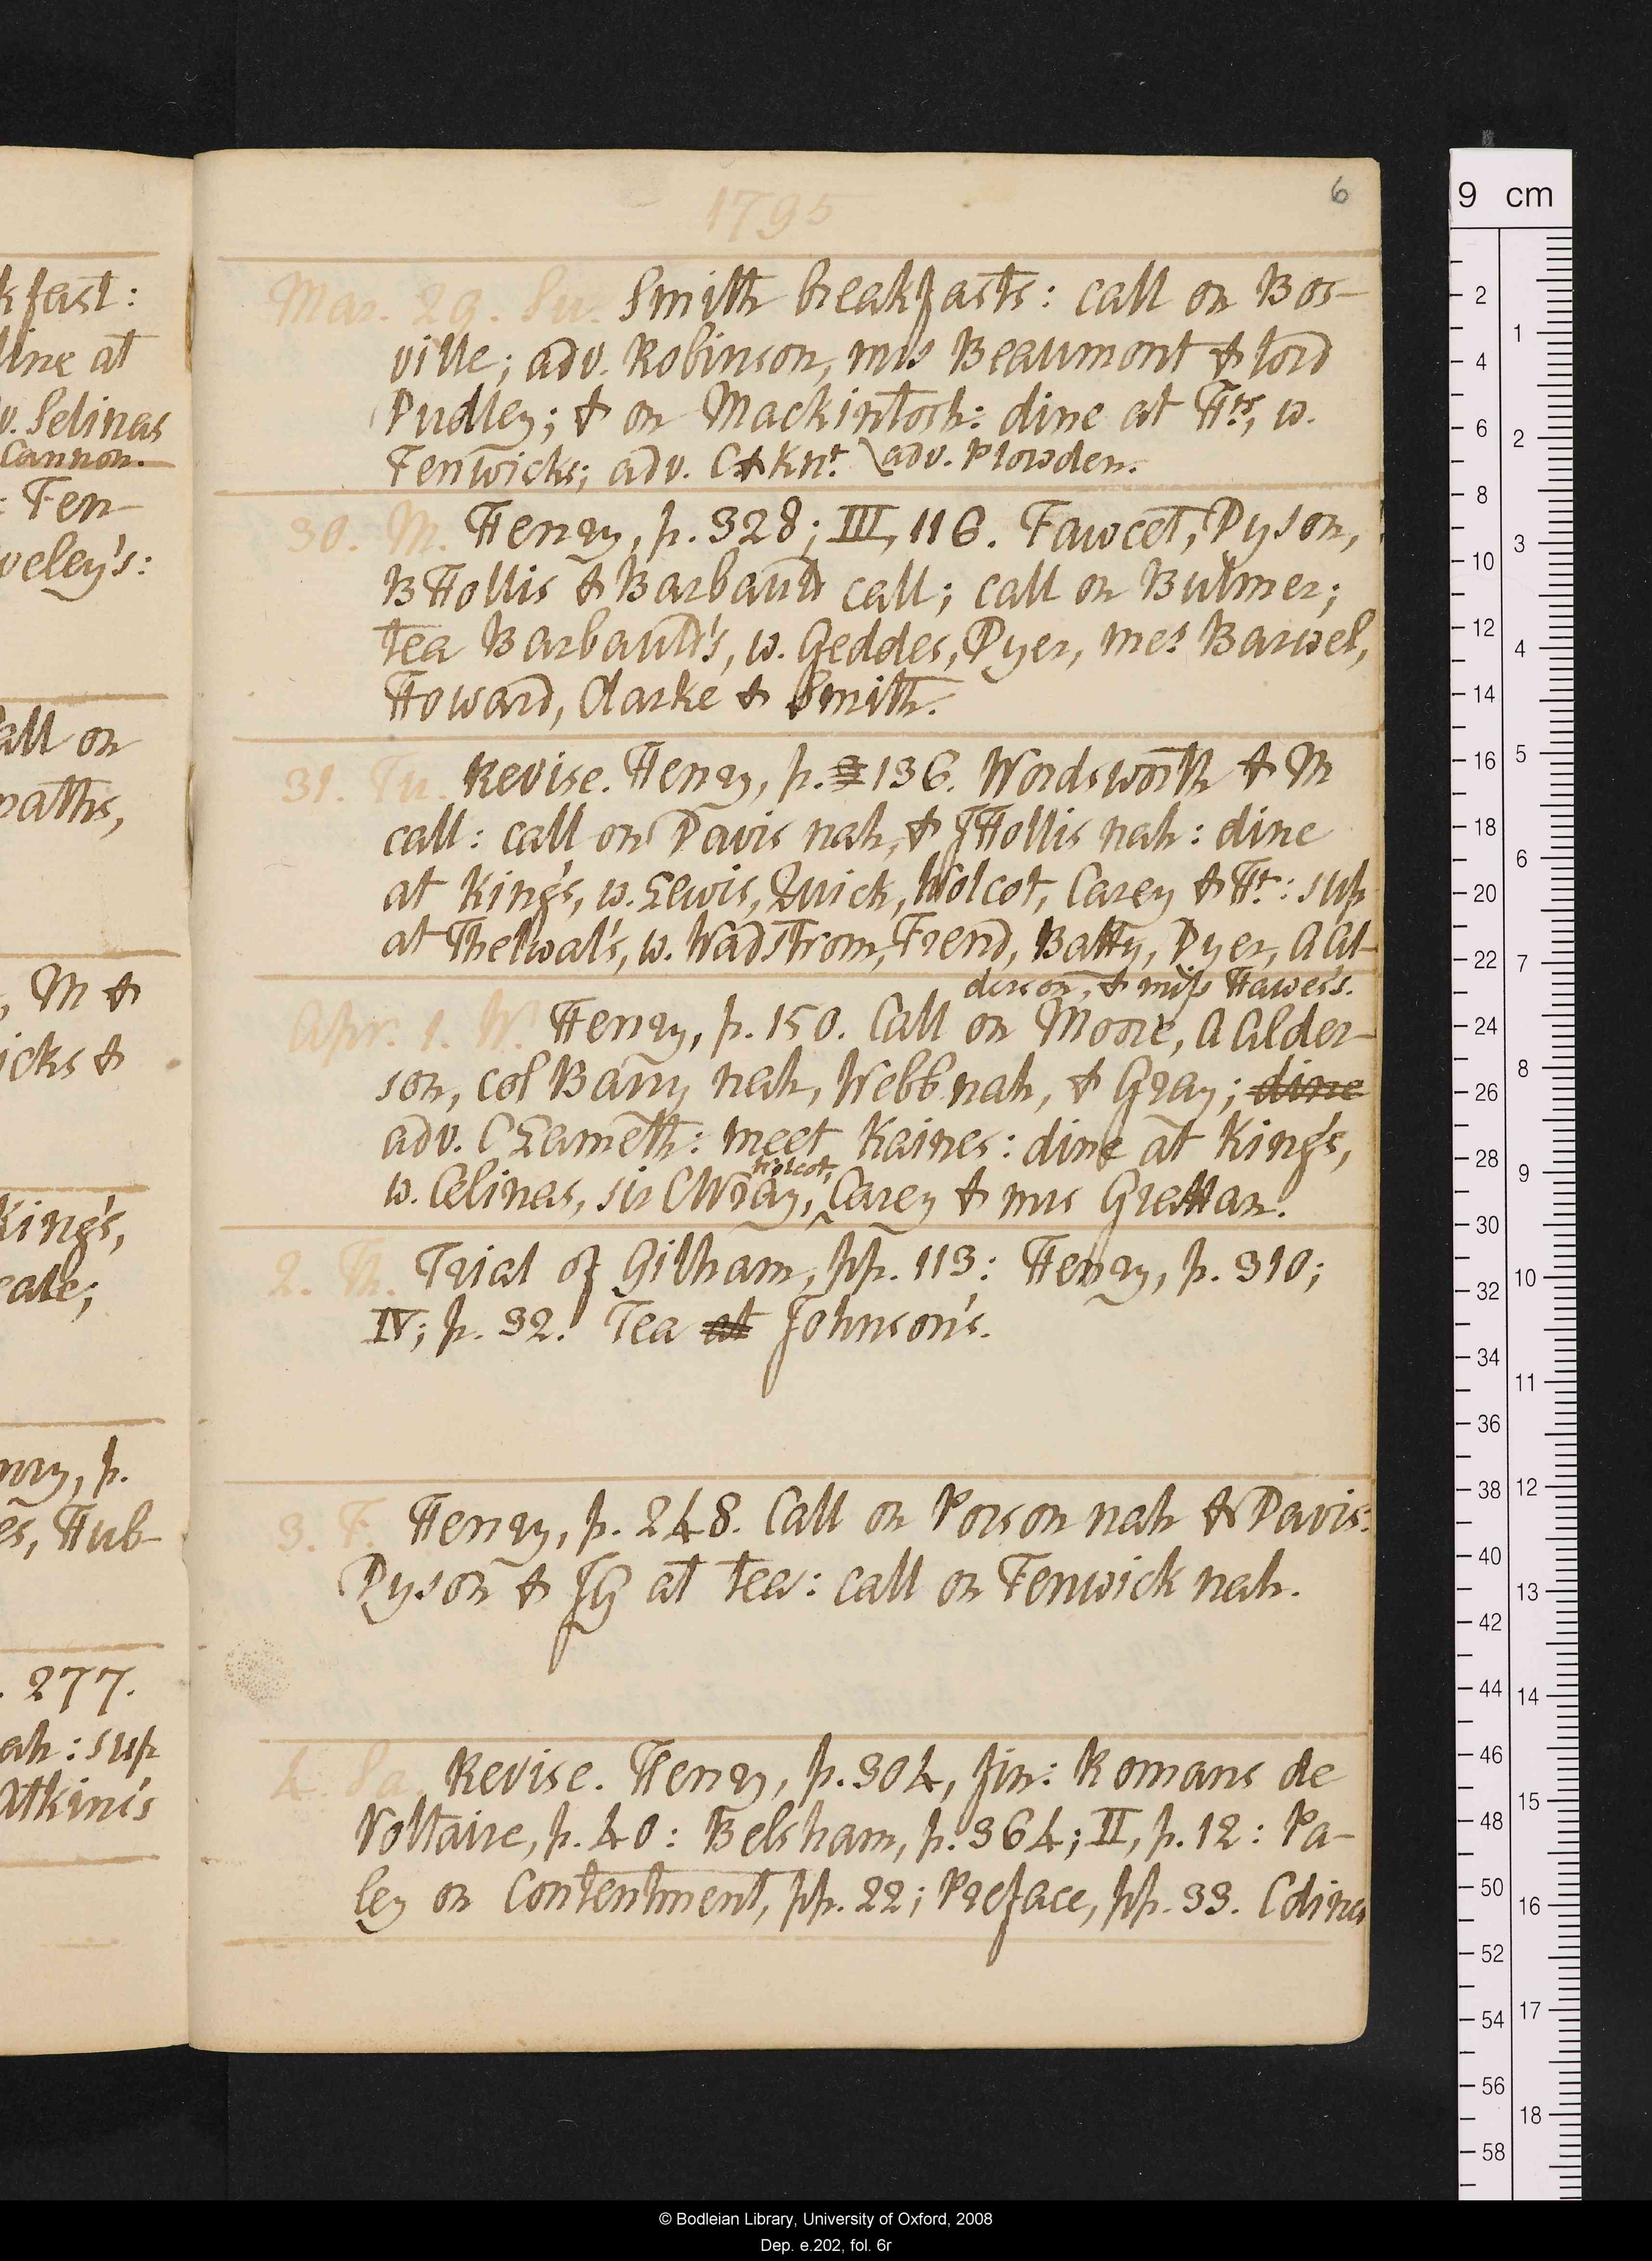 1795
6
Mar. 29. Su. Smith breakfasts: call on Bos-
ville; adv. Robinson, mrs Beaumont & lord
Dudley; & on Mackintosh: dine at Hts, w.
Fenwicks; adv. C & Knt. \adv. Plowden.
30. M. Henry, p. 328; III, 116. Fawcet, Dyson,
B Hollis & Barbauld call; call on Bulmer;
tea Barbauld's, w. Geddes, Dyer, mes Barwel,
Howard, Clarke & Smith.
31. Tu. Revise. Henry, p. 136. Wordsworth & M
call: call on Davis nah, & J Hollis nah: dine
at King's, w. Lewis, Quick, Wolcot, Carey & Ht: sup
at Thelwal's, w. Wadstrom, Frend, Batty, Dyer, A Al-
derson, & miss Hawes's.
Apr. 1. W. Henry, p. 150. Call on Moore, A Alder-
son, col Barry nah, Webb nah, & Gray; dine
adv. C Lameth: meet Kaines: dine at King's,
Wolcot,
w. Celinas, sir C Wray, Carey & mrs Grattan.
2. Th. Trial of Gilham, pp. 113: Henry, p. 310;
IV; p. 32. Tea at Johnson's.
3. F. Henry, p. 248. Call on Porson nah & Davis.
Dyson & JG at tea: call on Fenwick nah.
4. Sa. Revise. Henry, p. 304, fin: Romans de
Voltaire, p. 40: Belsham, p. 364; II, p. 12: Pa-
ley on Contentment, pp. 22; Preface, pp. 33. C dines
kfast:
dine at
v. Selinas
Cannon.
: Fen-
veley's:
all on
naths,
, M &
icks &
King's,
eale;
nry, p.
es, Hub-
. 277.
ah: sup
Atkin's
9 cm
2
4
6
8
10
12
14
16
18
20
22
24
26
28
30
32
34
36
38
40
42
44
46
48
50
52
54
56
58
1
2
3
4
5
6
7
8
9
10
11
12
13
14
15
16
17
18
© Bodleian Library, University of Oxford, 2008
Dep. e.202, fol. 6r